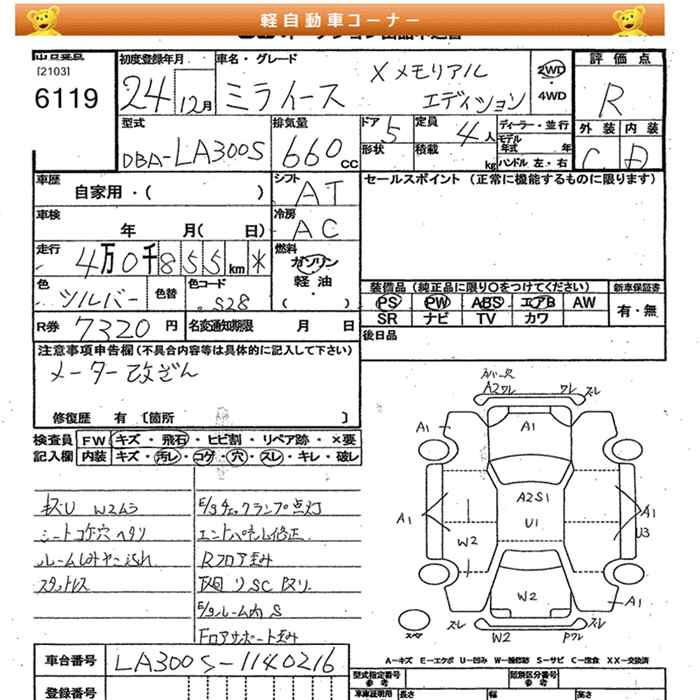 軽自動車コーナー
[2103]
6119
初度登録年月
24
12月
車名・グレード
Xメモリアル
ミライース
エディション
2WD
・
4WD
評価点
R
外装
内装
C
D
型式
DBA-LA300S
排気量
660cc
ドア
5
形状
定員
4人
積載
kg
ディーラー・並行
モデル年式 年
ハンドル 左・右
車歴
自家用・( )
シフト
AT
セールスポイント (正常に機能するものに限ります)
車検
年 月( 日)
冷房
AC
走行
4万0千855km*
燃料
ガソリン
軽油
( ・ )
色
シルバー
色替
色コード
S28
装備品(純正品に限り○をつけてください)
PS PW ABS エアB AW
SR ナビ TV カワ
新車保証書
有・無
R券 7320円
名変通知期限 月 日
後日品
注意事項申告欄(不具合内容等は具体的に記入して下さい)
メーター改ざん
修復歴 有 〔箇所 〕
検査員
記入欄
FW キズ・飛石・ヒビ割・リペア跡・×要
内装 キズ・汚レ・コゲ・穴・スレ・キレ・破レ
W2ムラ
シートコゲ穴ヘタリ
ルームしみヤニ汚れ
スタッドレス
E/gチェックランプ点灯
エンドパネル修正
Rフロア歪み
E/gルーム内S
Fロアサポート歪み
A2ワレ
ワレ
スレ
A1
A1
A1
A2S1
U1
A1
U3
W2
W2
A1
スレ
W2
Pワレ
スレ
スペア
A-キズ E-エクボ U-凹み W-補修跡 S-サビ C-腐食 XX-交換済
車台番号
LA300S-1140216
登録番号
型式指定番号
参考
類別区分番号
参考
車庫証明用
長さ
幅
高さ